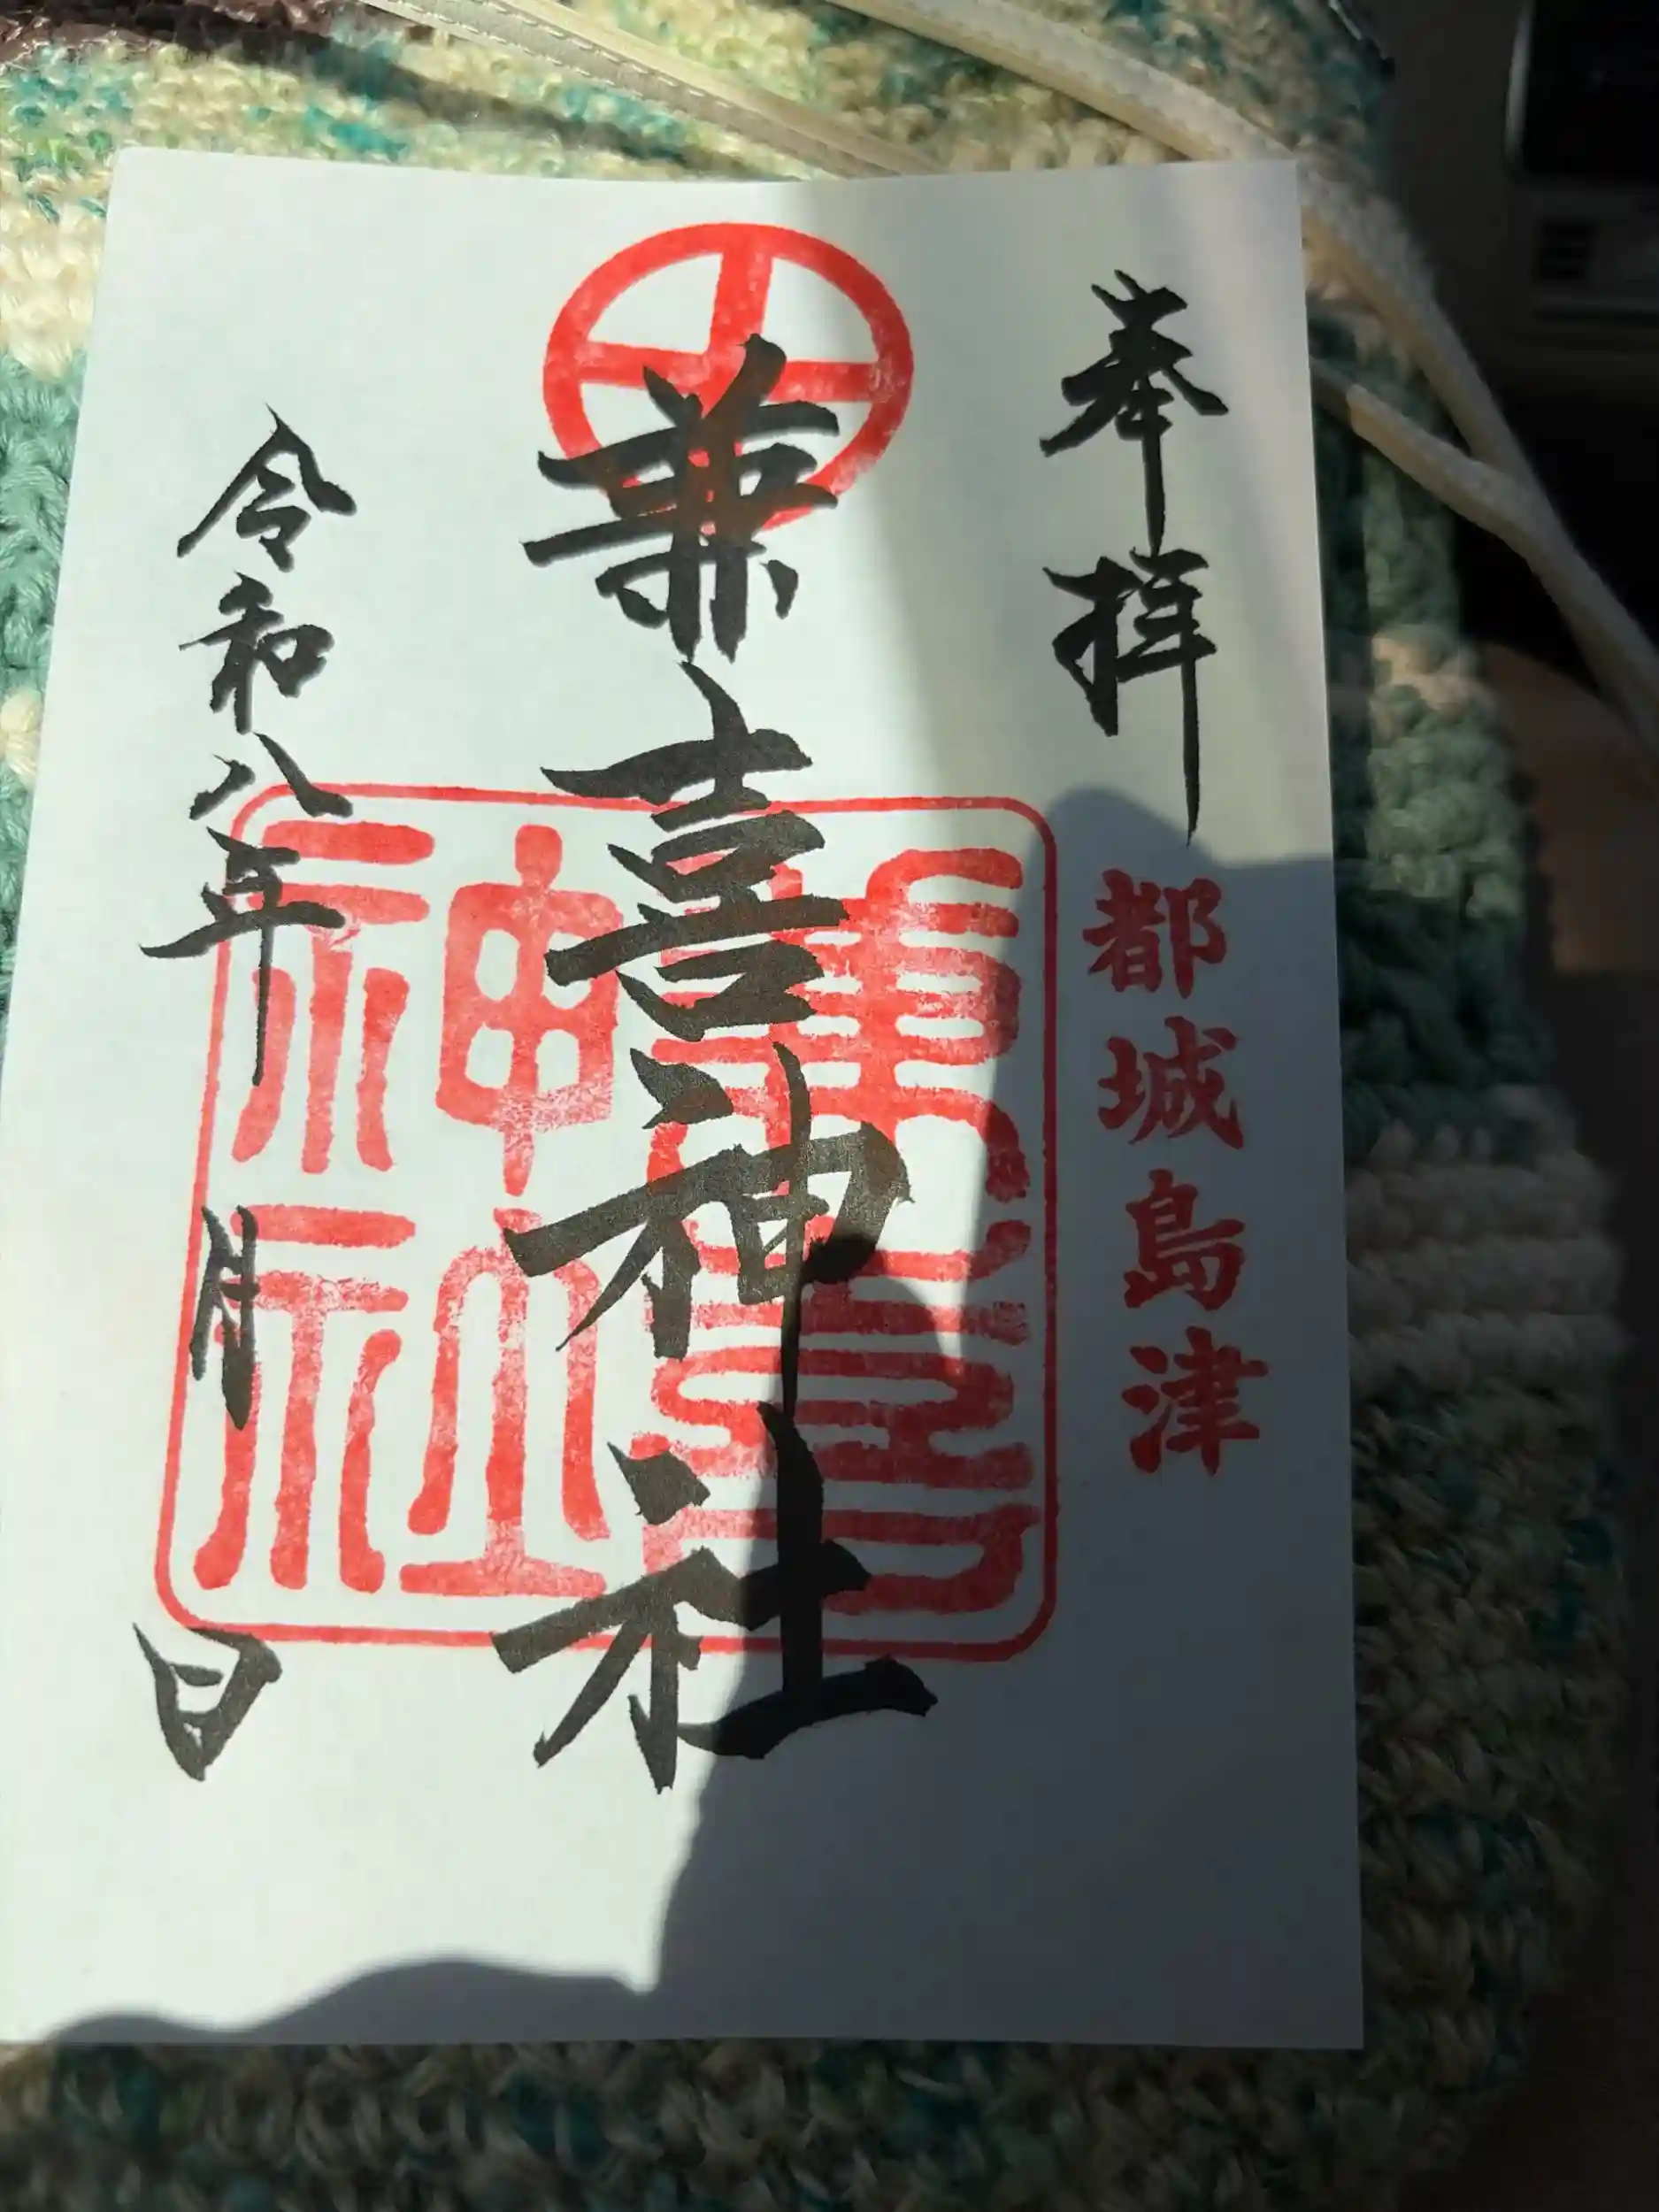 奉拝
都城島津
兼喜神社
兼喜
神社
令和八年
月
日